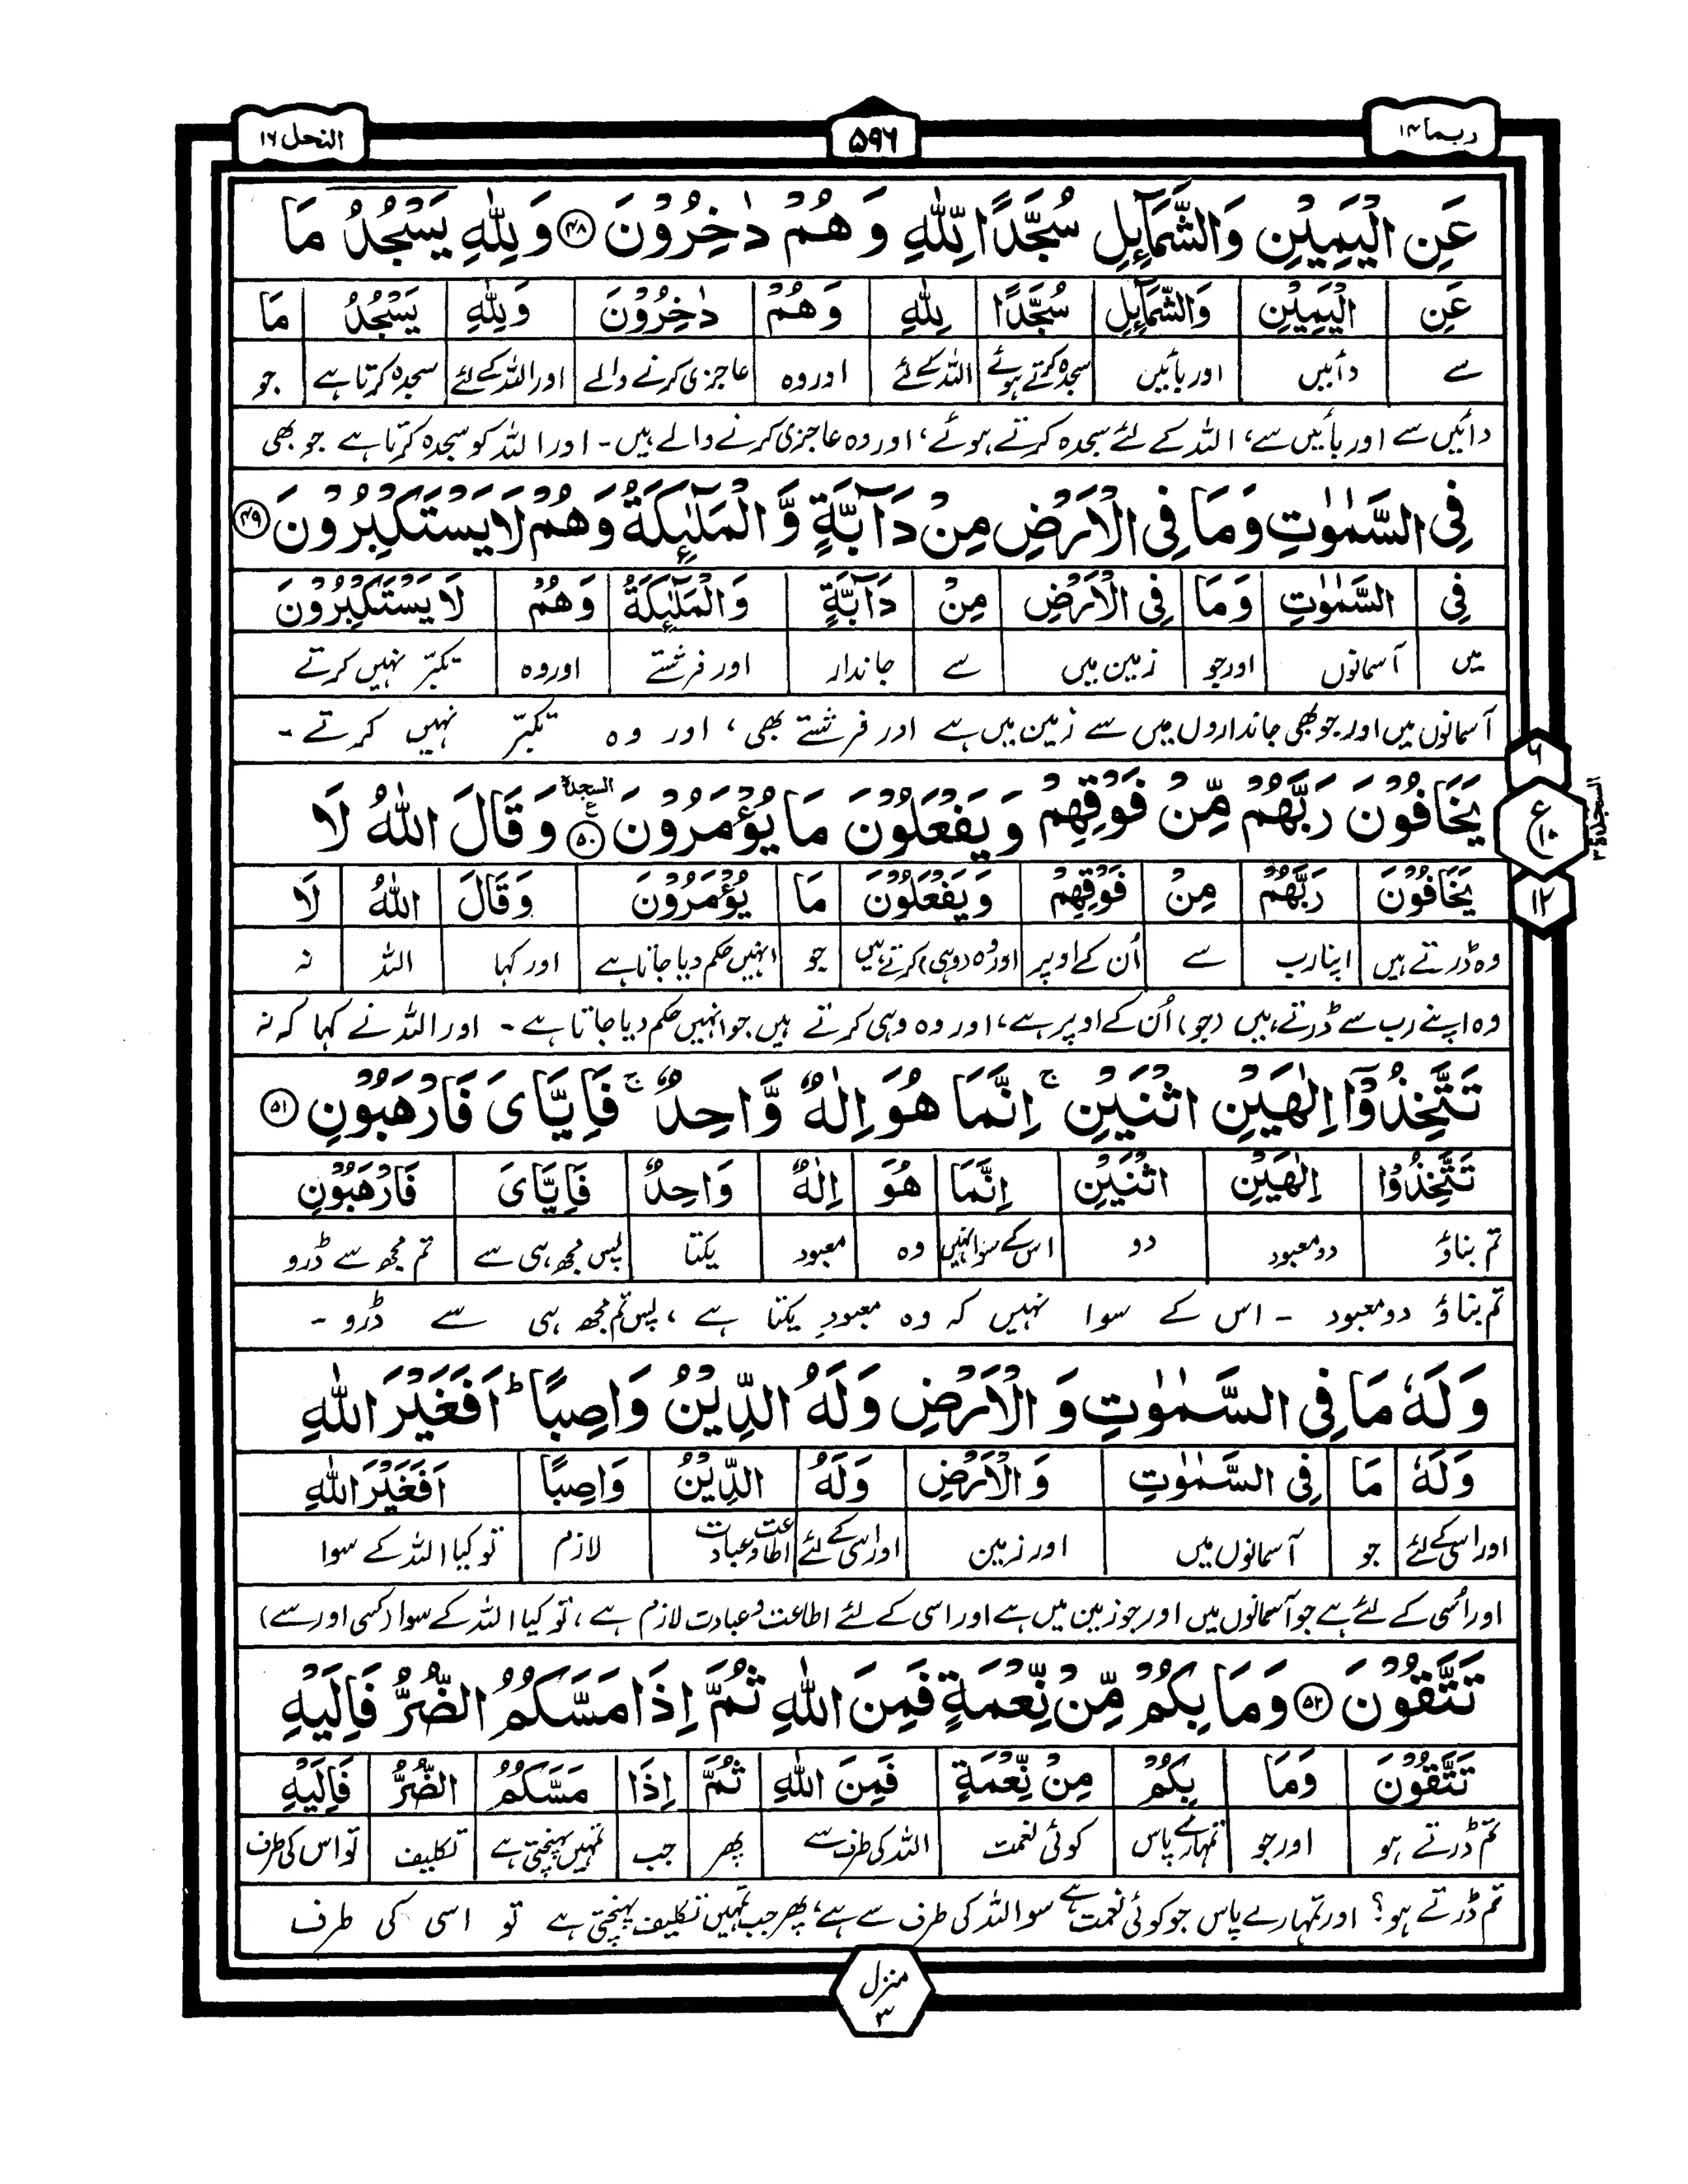 ربما ١٤ ۵۹۶ النحل ١٦
عَنِ الْيَمِيْنِ وَالشَّمَآئِلِ سُجَّدًا لِّلّٰهِ وَهُمْ دٰخِرُوْنَ ﴿۴۸﴾ وَلِلّٰهِ يَسْجُدُ مَا
عَنِ الْيَمِيْنِ وَالشَّمَآئِلِ سُجَّدًا لِلّٰهِ وَهُمْ دٰخِرُوْنَ وَلِلّٰهِ يَسْجُدُ مَا
سے دائیں اور بائیں سجدہ کرتے ہوئے اللہ کے لئے اور وہ عاجزی کرنے والے اور اللہ کے لئے سجدہ کرتا ہے جو
دائیں سے اور بائیں سے، اللہ کے لئے سجدہ کرتے ہوئے، اور وہ عاجزی کرنے والے ہیں۔ اور اللہ کو سجدہ کرتا ہے جو بھی
فِى السَّمٰوٰتِ وَمَا فِى الْاَرْضِ مِنْ دَآبَّةٍ وَّ الْمَلٰٓئِكَةُ وَهُمْ لَا يَسْتَكْبِرُوْنَ ﴿۴۹﴾
فِى السَّمٰوٰتِ وَمَا فِى الْاَرْضِ مِنْ دَآبَّةٍ وَالْمَلٰٓئِكَةُ وَهُمْ لَا يَسْتَكْبِرُوْنَ
میں آسمانوں اور جو زمین میں سے جاندار اور فرشتے اور وہ تکبّر نہیں کرتے
آسمانوں میں اور جو بھی جانداروں میں سے زمین میں ہے اور فرشتے بھی، اور وہ تکبّر نہیں کرتے۔
يَخَافُوْنَ رَبَّهُمْ مِّنْ فَوْقِهِمْ وَيَفْعَلُوْنَ مَا يُؤْمَرُوْنَ ﴿۵۰﴾ السجدة ع وَقَالَ اللّٰهُ لَا
۶ ع ١٠ ١٢ السجدة ٣
يَخَافُوْنَ رَبَّهُمْ مِنْ فَوْقِهِمْ وَيَفْعَلُوْنَ مَا يُؤْمَرُوْنَ وَقَالَ اللّٰهُ لَا
وہ ڈرتے ہیں اپنا رب سے اُن کے اوپر اور وہ (وہی) کرتے ہیں جو انہیں حکم دیا جاتا ہے اور کہا اللہ نہ
وہ اپنے رب سے ڈرتے ہیں (جو) اُن کے اوپر ہے، اور وہ وہی کرتے ہیں جو انہیں حکم دیا جاتا ہے۔ اور اللہ نے کہا کہ نہ
تَتَّخِذُوْٓا اِلٰهَيْنِ اثْنَيْنِ ۚ اِنَّمَا هُوَ اِلٰهٌ وَّاحِدٌ ۚ فَاِيَّاىَ فَارْهَبُوْنِ ﴿۵۱﴾
تَتَّخِذُوْا اِلٰهَيْنِ اثْنَيْنِ اِنَّمَا هُوَ اِلٰهٌ وَاحِدٌ فَاِيَّاىَ فَارْهَبُوْنِ
تم بناؤ دو معبود دو اس کے سوا نہیں وہ معبود یکتا پس مجھ ہی سے تم مجھ سے ڈرو
تم بناؤ دو معبود ۔ اس کے سوا نہیں کہ وہ معبودِ یکتا ہے، پس تم مجھ ہی سے ڈرو۔
وَلَهٗ مَا فِى السَّمٰوٰتِ وَ الْاَرْضِ وَلَهُ الدِّيْنُ وَاصِبًا ؕ اَفَغَيْرَ اللّٰهِ
وَلَهٗ مَا فِى السَّمٰوٰتِ وَالْاَرْضِ وَلَهُ الدِّيْنُ وَاصِبًا اَفَغَيْرَ اللّٰهِ
اور اسی کے لئے جو آسمانوں میں اور زمین اور اسی کے لئے اطاعت و عبادت لازم تو کیا اللہ کے سوا
اور اُسی کے لئے ہے جو آسمانوں میں اور جو زمین میں ہے اور اسی کے لئے اطاعت و عبادت لازم ہے، تو کیا اللہ کے سوا (کسی اور سے)
تَتَّقُوْنَ ﴿۵۲﴾ وَمَا بِكُمْ مِّنْ نِّعْمَةٍ فَمِنَ اللّٰهِ ثُمَّ اِذَا مَسَّكُمُ الضُّرُّ فَاِلَيْهِ
تَتَّقُوْنَ وَمَا بِكُمْ مِنْ نِّعْمَةٍ فَمِنَ اللّٰهِ ثُمَّ اِذَا مَسَّكُمُ الضُّرُّ فَاِلَيْهِ
تم ڈرتے ہو اور جو تمہارے پاس کوئی نعمت اللہ کی طرف سے پھر جب تمہیں پہنچتی ہے تکلیف تو اس کی طرف
تم ڈرتے ہو؟ اور تمہارے پاس جو کوئی نعمت ہے سو اللہ کی طرف سے ہے، پھر جب تمہیں تکلیف پہنچتی ہے تو اسی کی طرف
منزل ٣